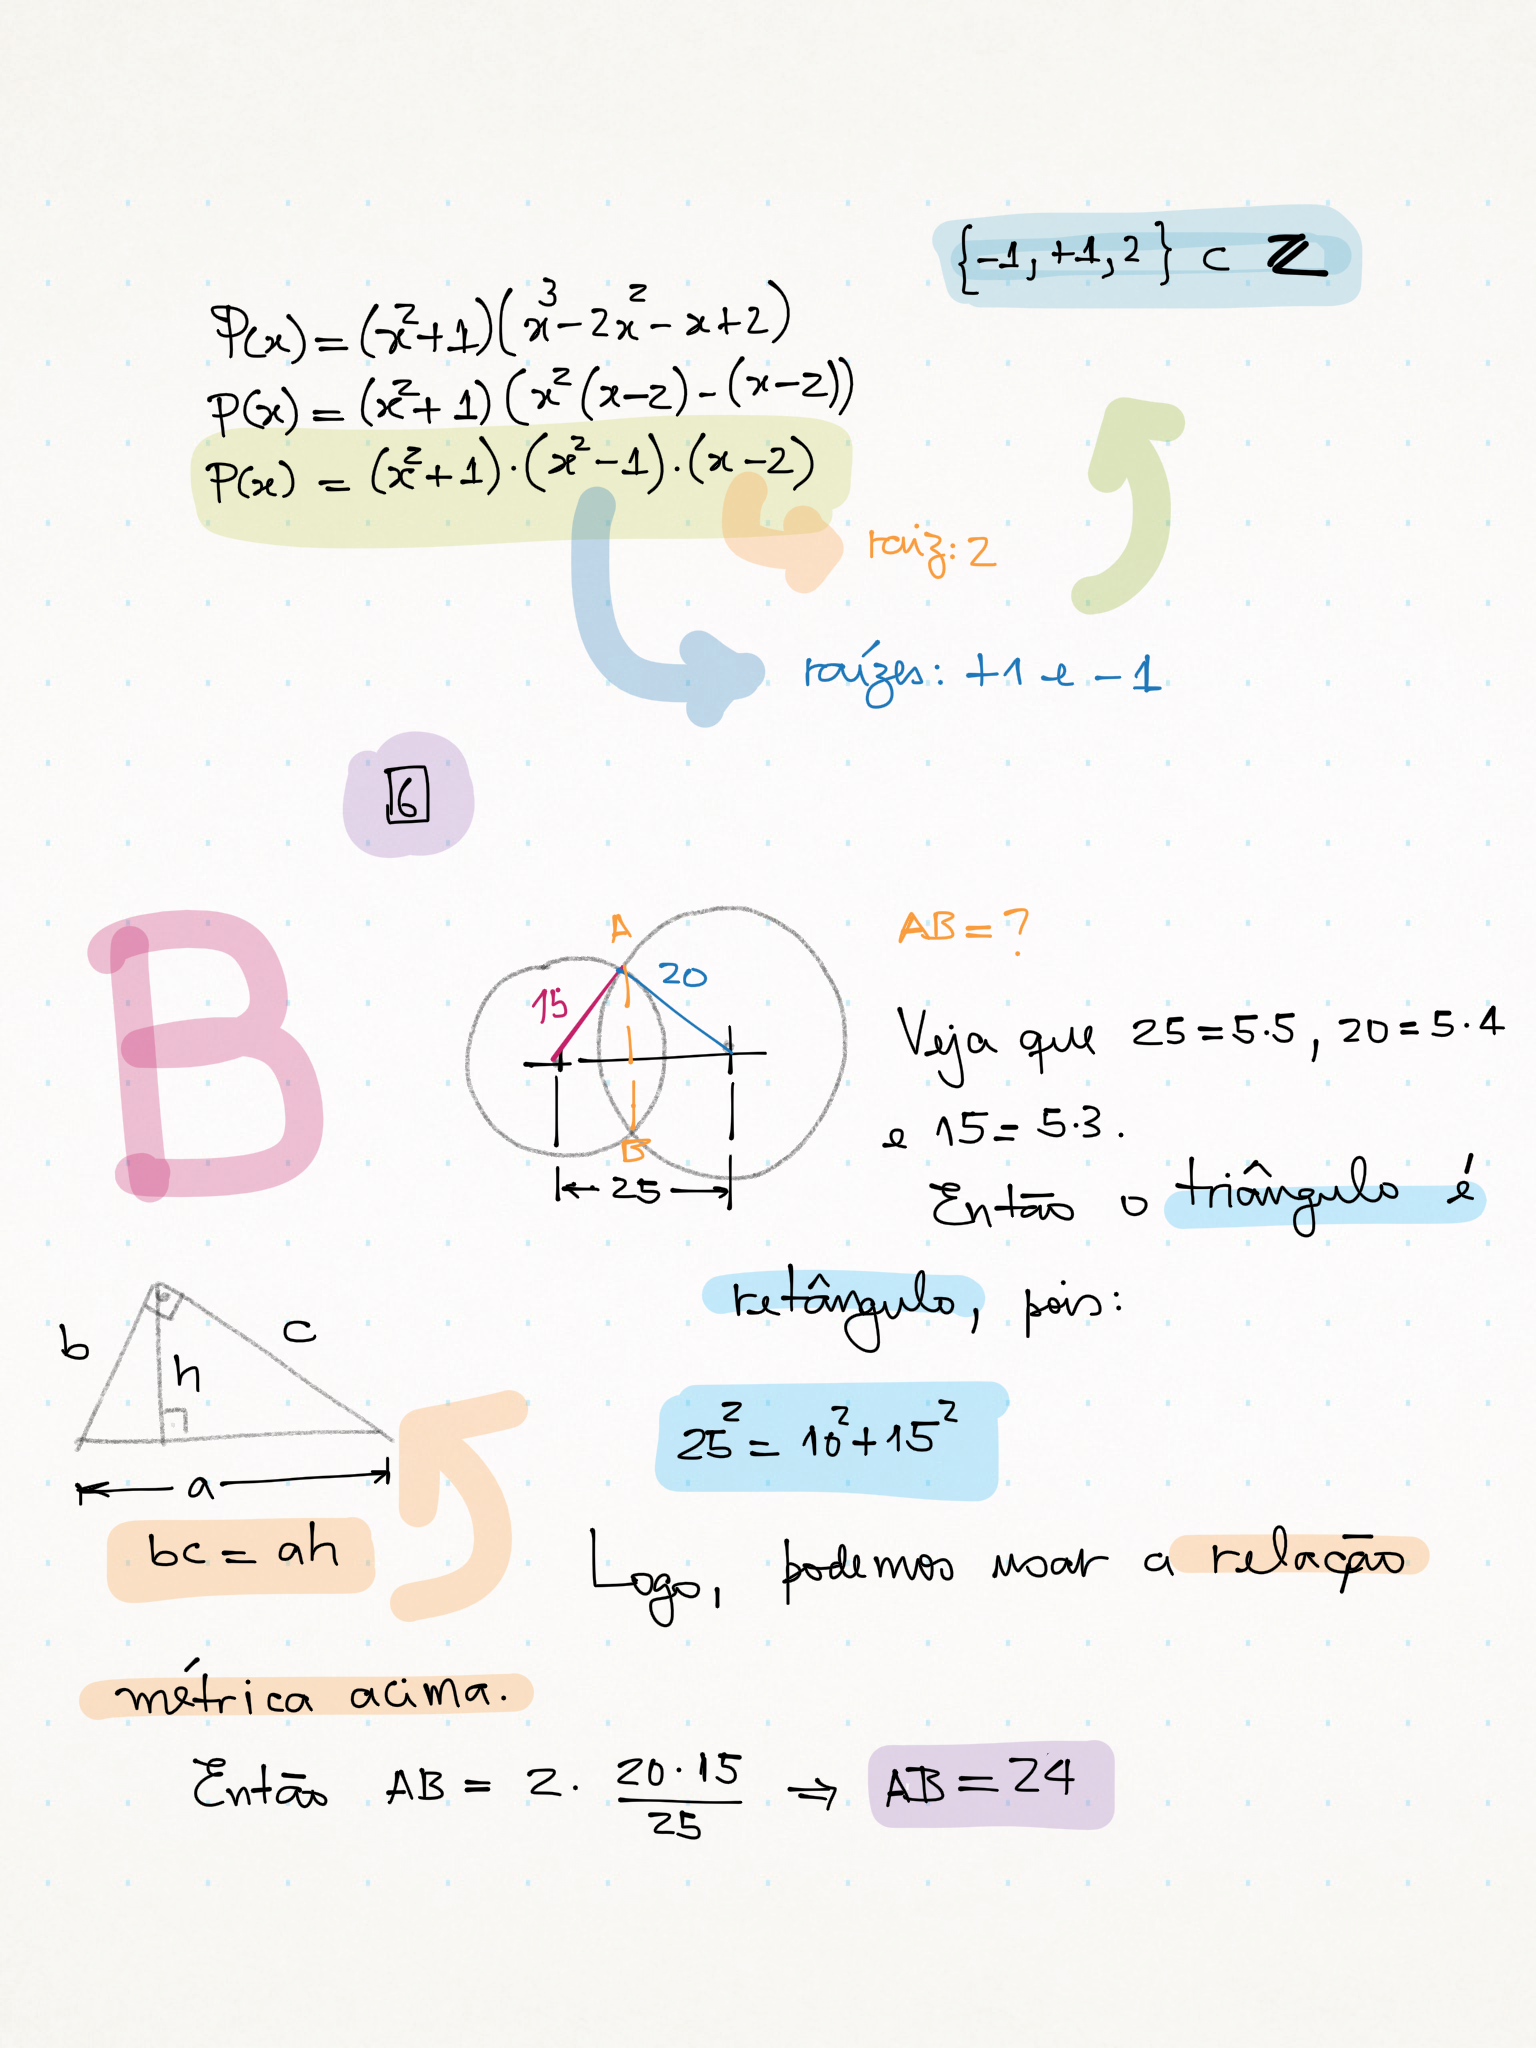 {-1, +1, 2} ⊂ ℤ
P(x) = (x²+1)(x³-2x²-x+2)
P(x) = (x²+1)(x²(x-2)-(x-2))
P(x) = (x²+1)·(x²-1)·(x-2)
raiz: 2
raízes: +1 e -1
6
B
A
15
20
B
25
AB = ?
Veja que 25=5·5, 20=5·4
e 15=5·3.
Então o triângulo é
retângulo, pois:
b
c
h
a
bc = ah
25² = 10²+15²
Logo, podemos usar a relação
métrica acima.
Então AB = 2· 20·15/25 ⇒ AB = 24